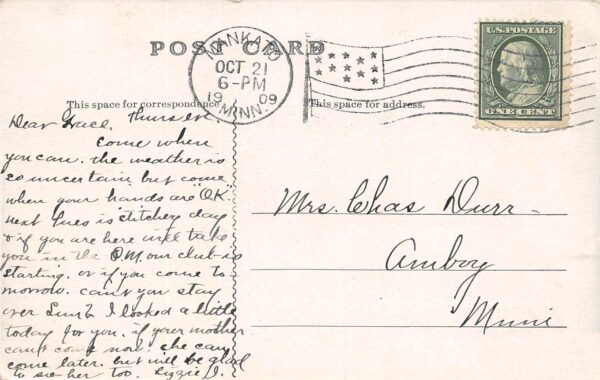 POST CARD
MANKATO
OCT 21
6-PM
1909
MINN.
U.S. POSTAGE
ONE CENT
This space for correspondence
This space for address.
Thurs eve
Dear Grace.
Come when
you can. the weather is
so uncertain but come
when your hands are "O.K."
next Tues is stitchery day
& if you are here will take
you in the O.M. our club is
starting. or if you come to
morrow. can't you stay
over Sun? I looked a little
today for you. if your mother
can't come now. she can
come later. but will be glad
to see her too. Lizzie J.
Mrs. Chas Durr-
Amboy
Minn